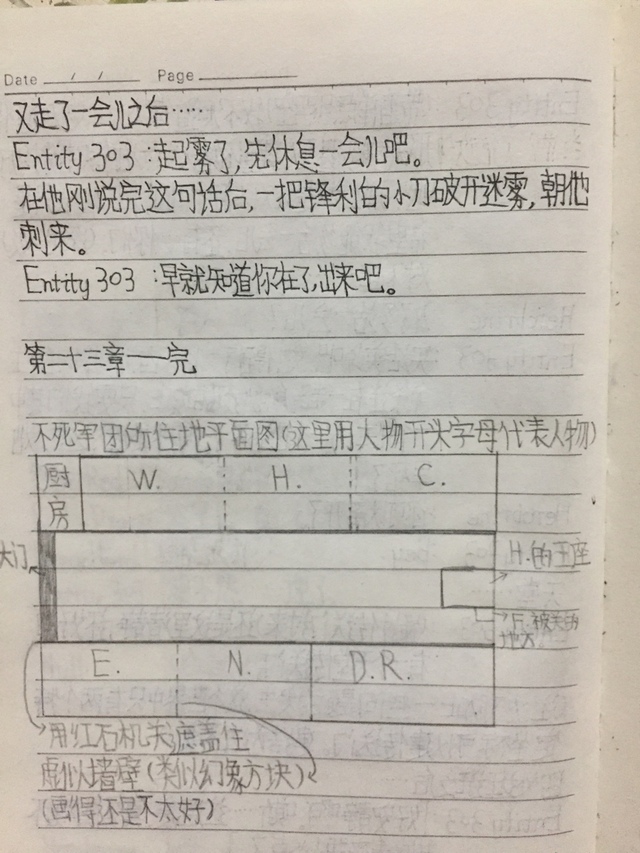 Date / / Page
又走了一会儿之后……
Entity 303：起雾了，先休息一会儿吧。
在他刚说完这句话后，一把锋利的小刀破开迷雾，朝他
刺来。
Entity 303：早就知道你在了，出来吧。
第二十三章——完
不死军团所住地平面图（这里用人物开头字母代表人物）
厨房 W. H. C.
大门
H.的王座
E.被关的
地方
E. N. D.R.
用红石机关遮盖住
虚似墙壁（类似幻象方块）
（画得还是不太好）